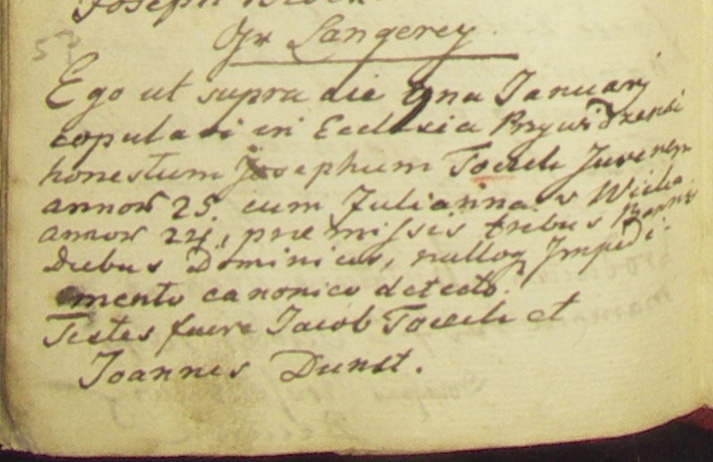 Joseph
Ex Langerey.
Ego ut supra die 9na Januarj
copulavi in Ecclesia Przywidzensi
honestum Josephum Juvenem
annor 25. cum Julianna v
annor 24, praemissis trebus Bannis
Diebus Dominicis, nulloq Impedi-
mento canonico detecto.
Testes fuere Jacob et
Joannes Dunst.